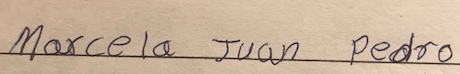 Marcela Juan Pedro